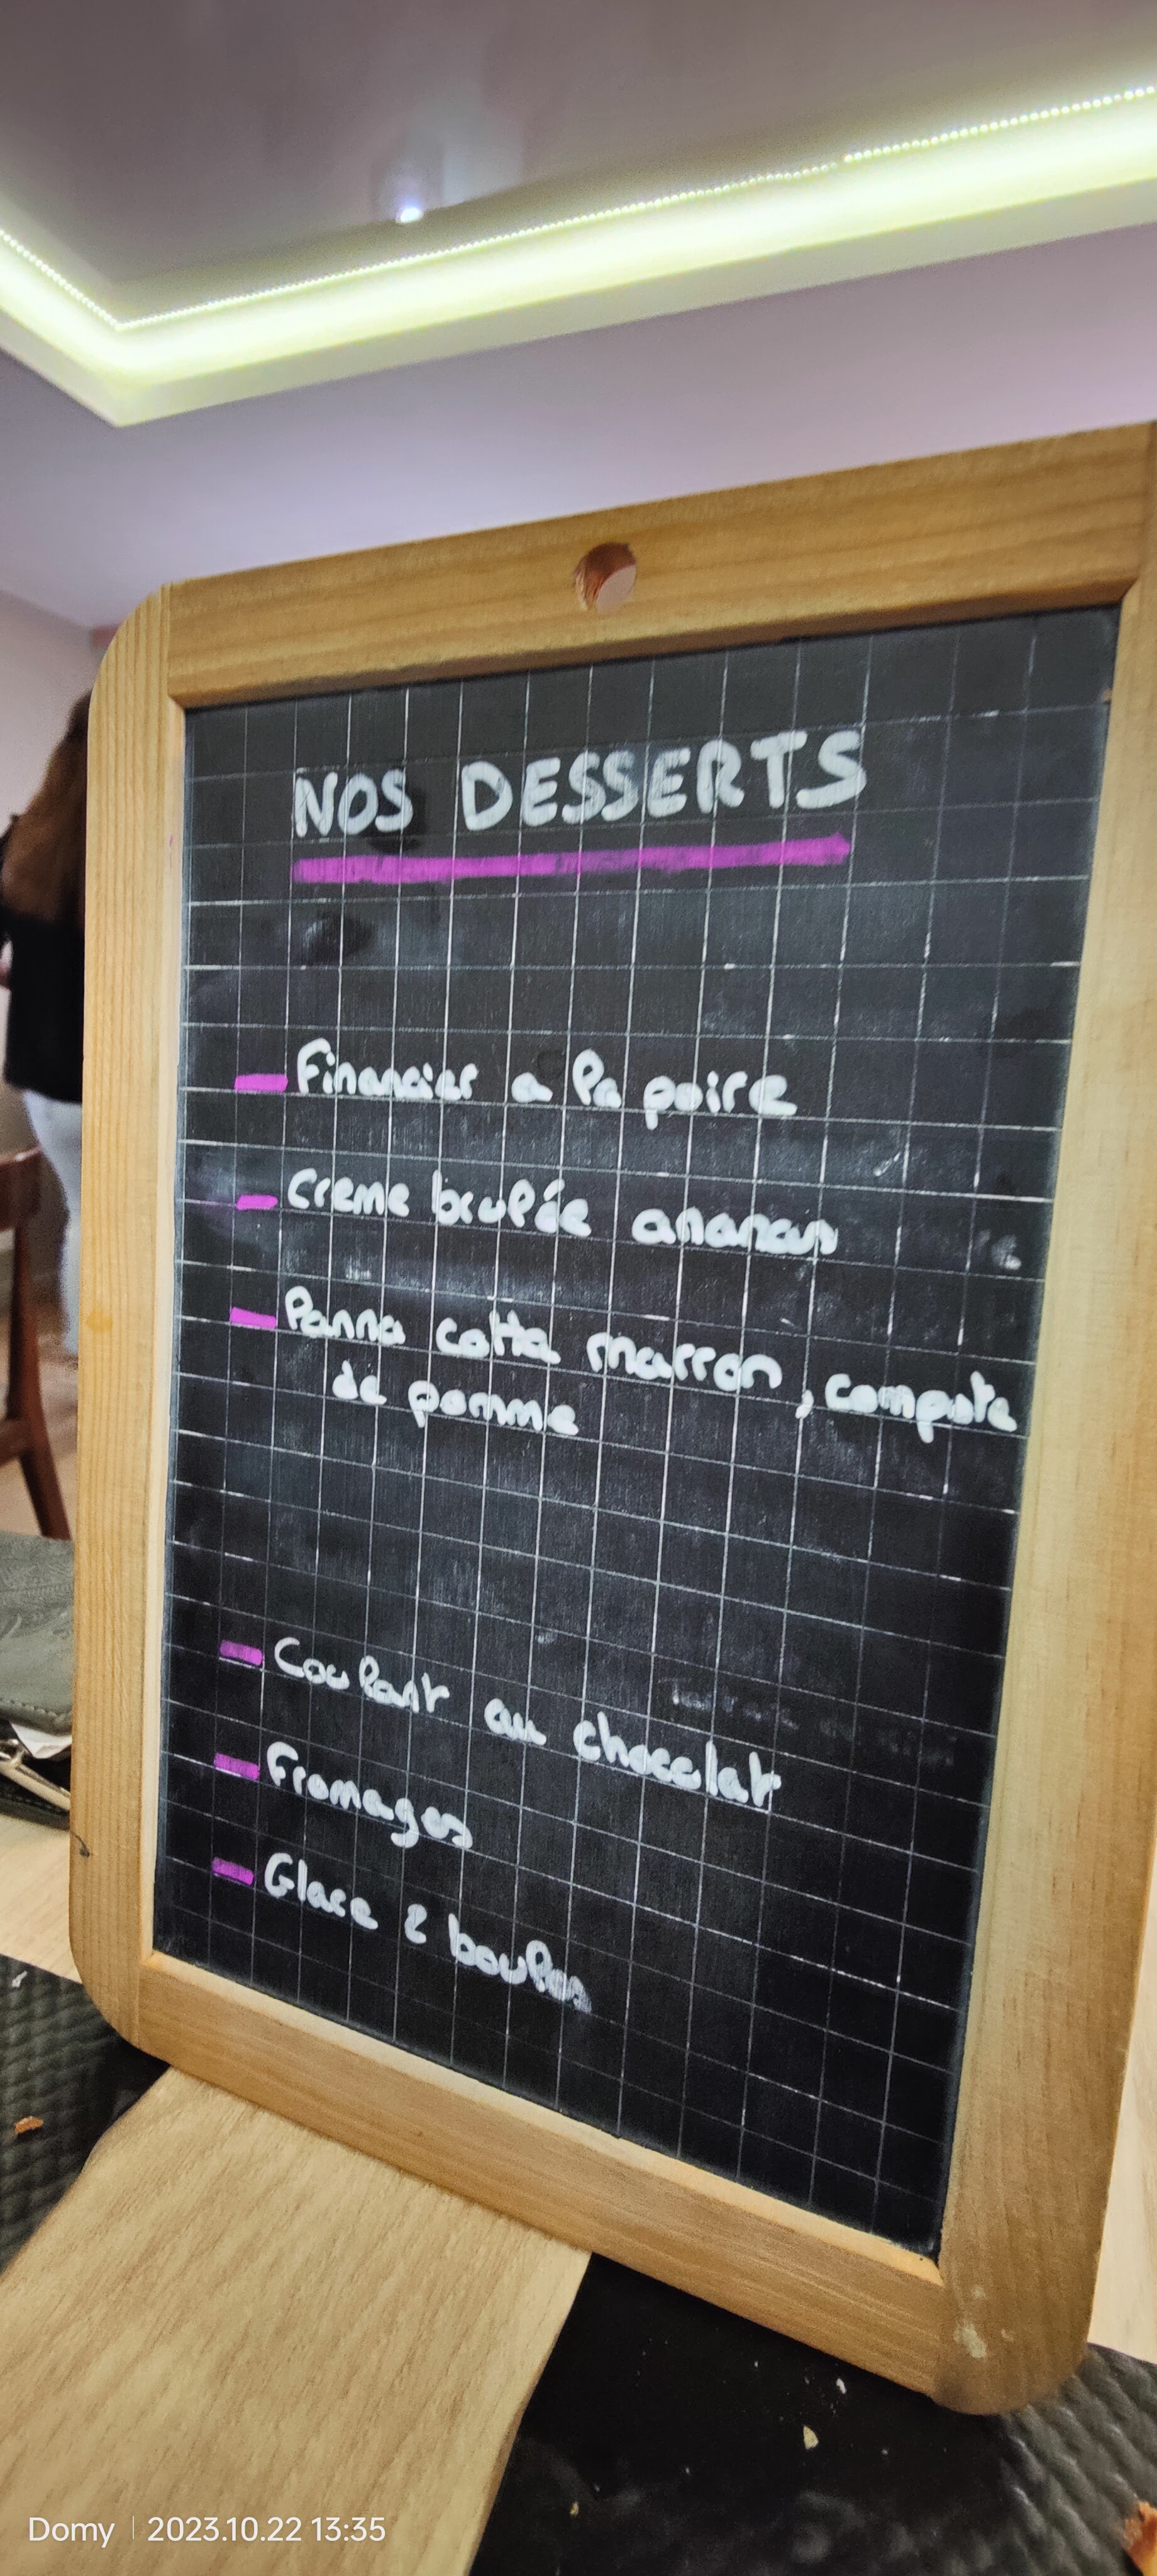 NOS DESSERTS
Financier a la poire
Creme brulée ananas
Panna cotta marron, compote
de pomme
Coulant au chocolat
Fromages
Glace 2 boules
Domy | 2023.10.22 13:35